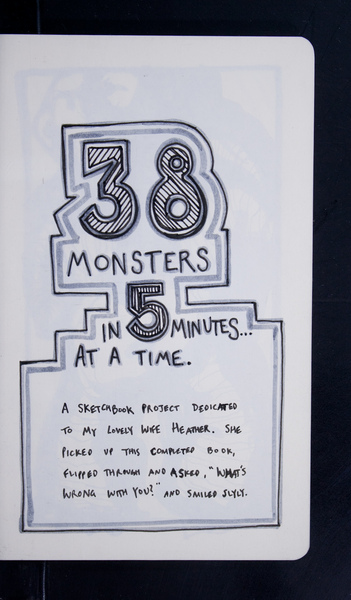 38
MONSTERS
IN 5 MINUTES...
AT A TIME.
A SKETCHBOOK PROJECT DEDICATED
TO MY LOVELY WIFE HEATHER. SHE
PICKED UP THIS COMPLETED BOOK,
FLIPPED THROUGH AND ASKED, "WHAT'S
WRONG WITH YOU?" AND SMILED SLYLY.